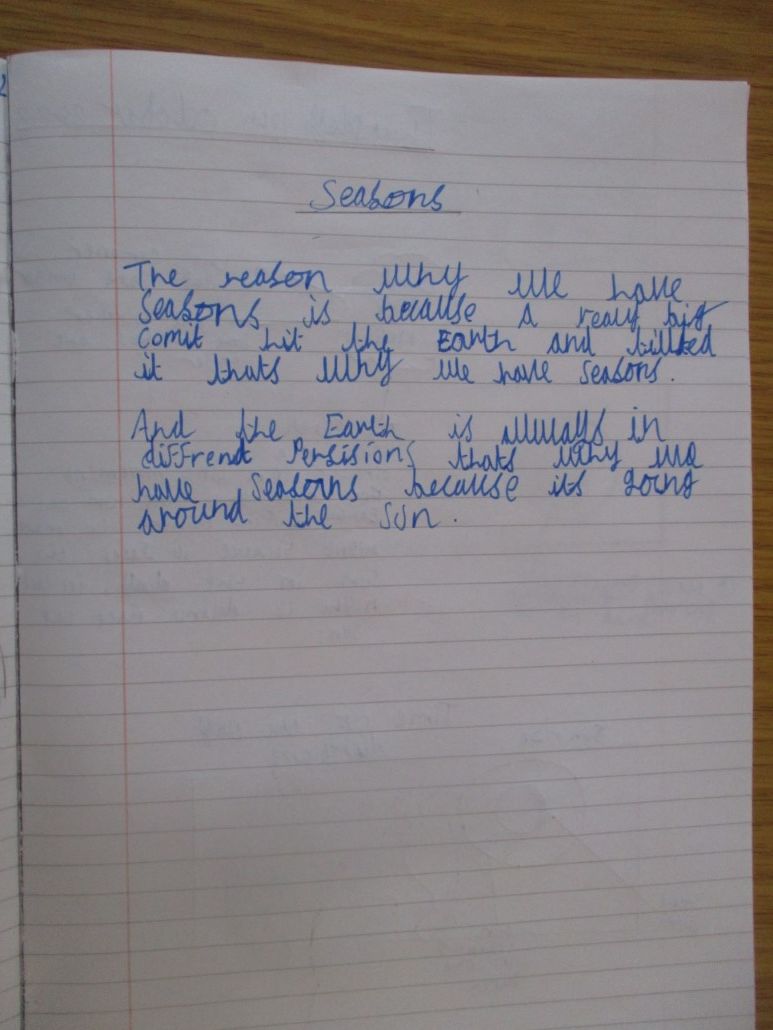 Seasons
The reason why we have
seasons is because a realy big
comit hit the Earth and tillted
it thats why we have seasons.
And the Earth is allways in
diffrent Persisions thats why we
have seasons because its going
around the sun.